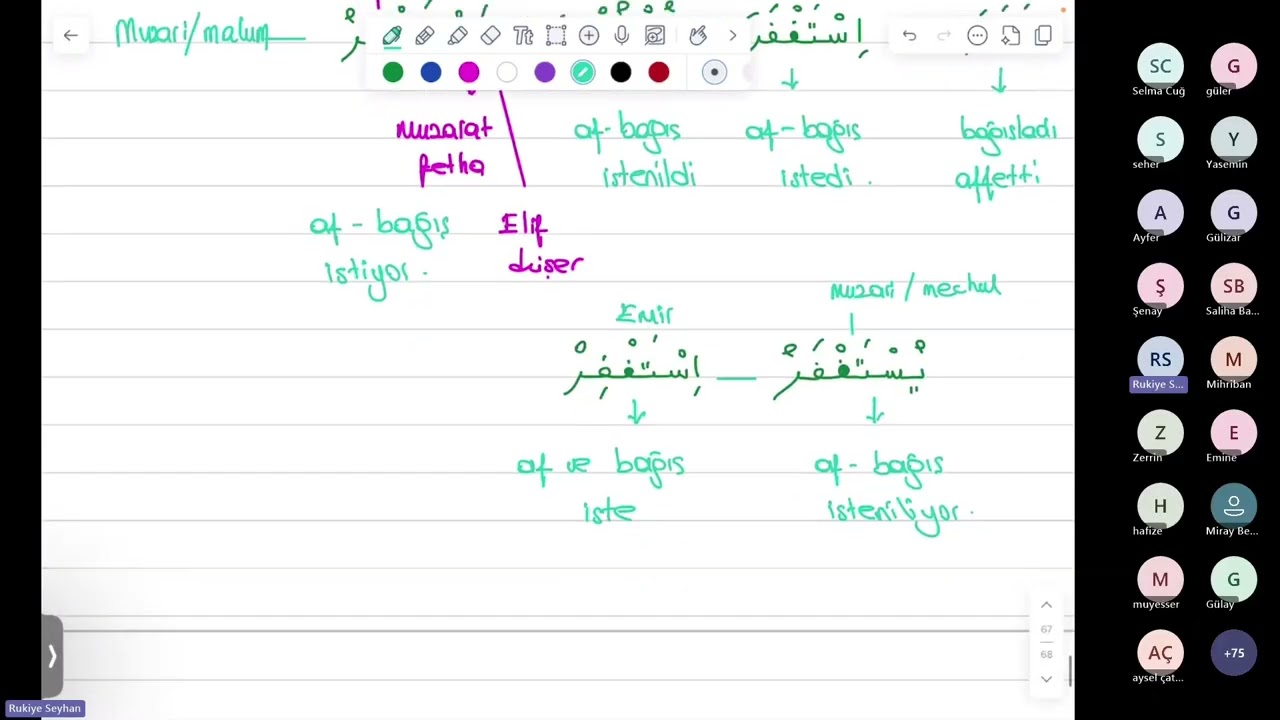 Muzari/malum
اِسْتَغْفَرَ
Muzarat
fetha
af-bağış
istenildi
af-bağış
istedi.
bağışladı
affetti
af-bağış
istiyor.
Elif
düşer
Emir
muzari/mechul
اِسْتَغْفِرْ
يُسْتَغْفَرُ
af ve bağış
iste
af-bağış
isteniliyor.
67
68
Rukiye Seyhan
SC
Selma Cuğ
G
güler
S
seher
Y
Yasemin
A
Ayfer
G
Gülizar
Ş
Şenay
SB
Saliha Ba...
RS
Rukiye S...
M
Mihriban
Z
Zerrin
E
Emine
H
hafize
Miray Be...
M
muyesser
G
Gülay
AÇ
aysel çat...
+75